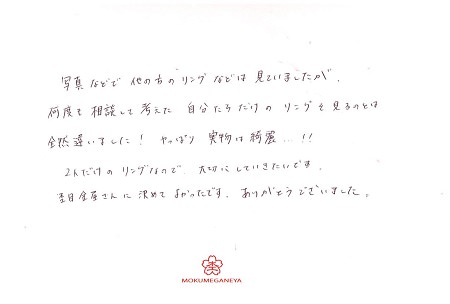 写真などで 他の方の リングなどは 見ていましたが、
何度も 相談して 考えた 自分たちだけの リングを 見るのとは
全然違いました！ やっぱり 実物は 綺麗…!!
2人だけの リングなので、大切に していきたいです。
杢目金屋さんに 決めて よかったです。ありがとうございました。
MOKUMEGANEYA